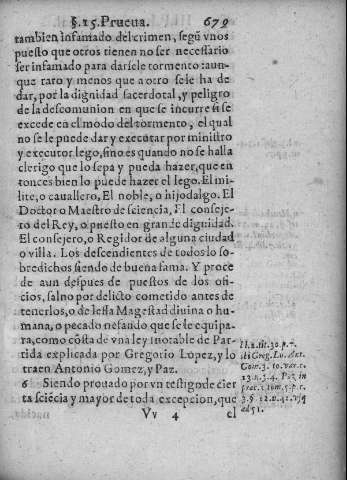 §.15. Prueua. 679
tambien infamado del crimen, segũ vnos
puesto que otros tienen no ser necessario
ser infamado para darsele tormento: aun-
que raro y menos que a otro se le ha de
dar, por la dignidad sacerdotal, y peligro
de la descomunion en que se incurre si se
excede en el modo del tormento, el qual
no se le puede dar y executar por ministro
y executor lego, sino es quando no se halla
clerigo que lo sepa y pueda hazer, que en
tonces bien lo puede hazer el lego. El mi-
lite, o cauallero, El noble, o hijodalgo. El
Doctor o Maestro de sciencia, El conseje-
ro del Rey, o puesto en grande dignidad.
El consejero, o Regidor de alguna ciudad
o villa. Los descendientes de todos lo so-
bredichos siendo de buena fama. Y proce
de aun despues de puestos de los ofi-
cios, saluo por delicto cometido antes de
tenerlos, o de lessa Magestad diuina o hu-
mana, o pecado nefando que se le equipa-
ra, como cõsta de vna ley notable de Par-
tida explicada por Gregorio Lopez, y lo
traen Antonio Gomez, y Paz.
6 Siendo prouado por vn testigo de cier
ta sciẽcia y mayor de toda excepcion, que
Vv 4 el
l l. 2. tit. 30. p. 7.
ibi Greg. Lo. Ant.
Gom. 3. to. var. c.
13. n. 3. 4. Paz in
prac. 1. tom. 5. p. c.
3. §. 12. n. 41. vsq
ad 51.